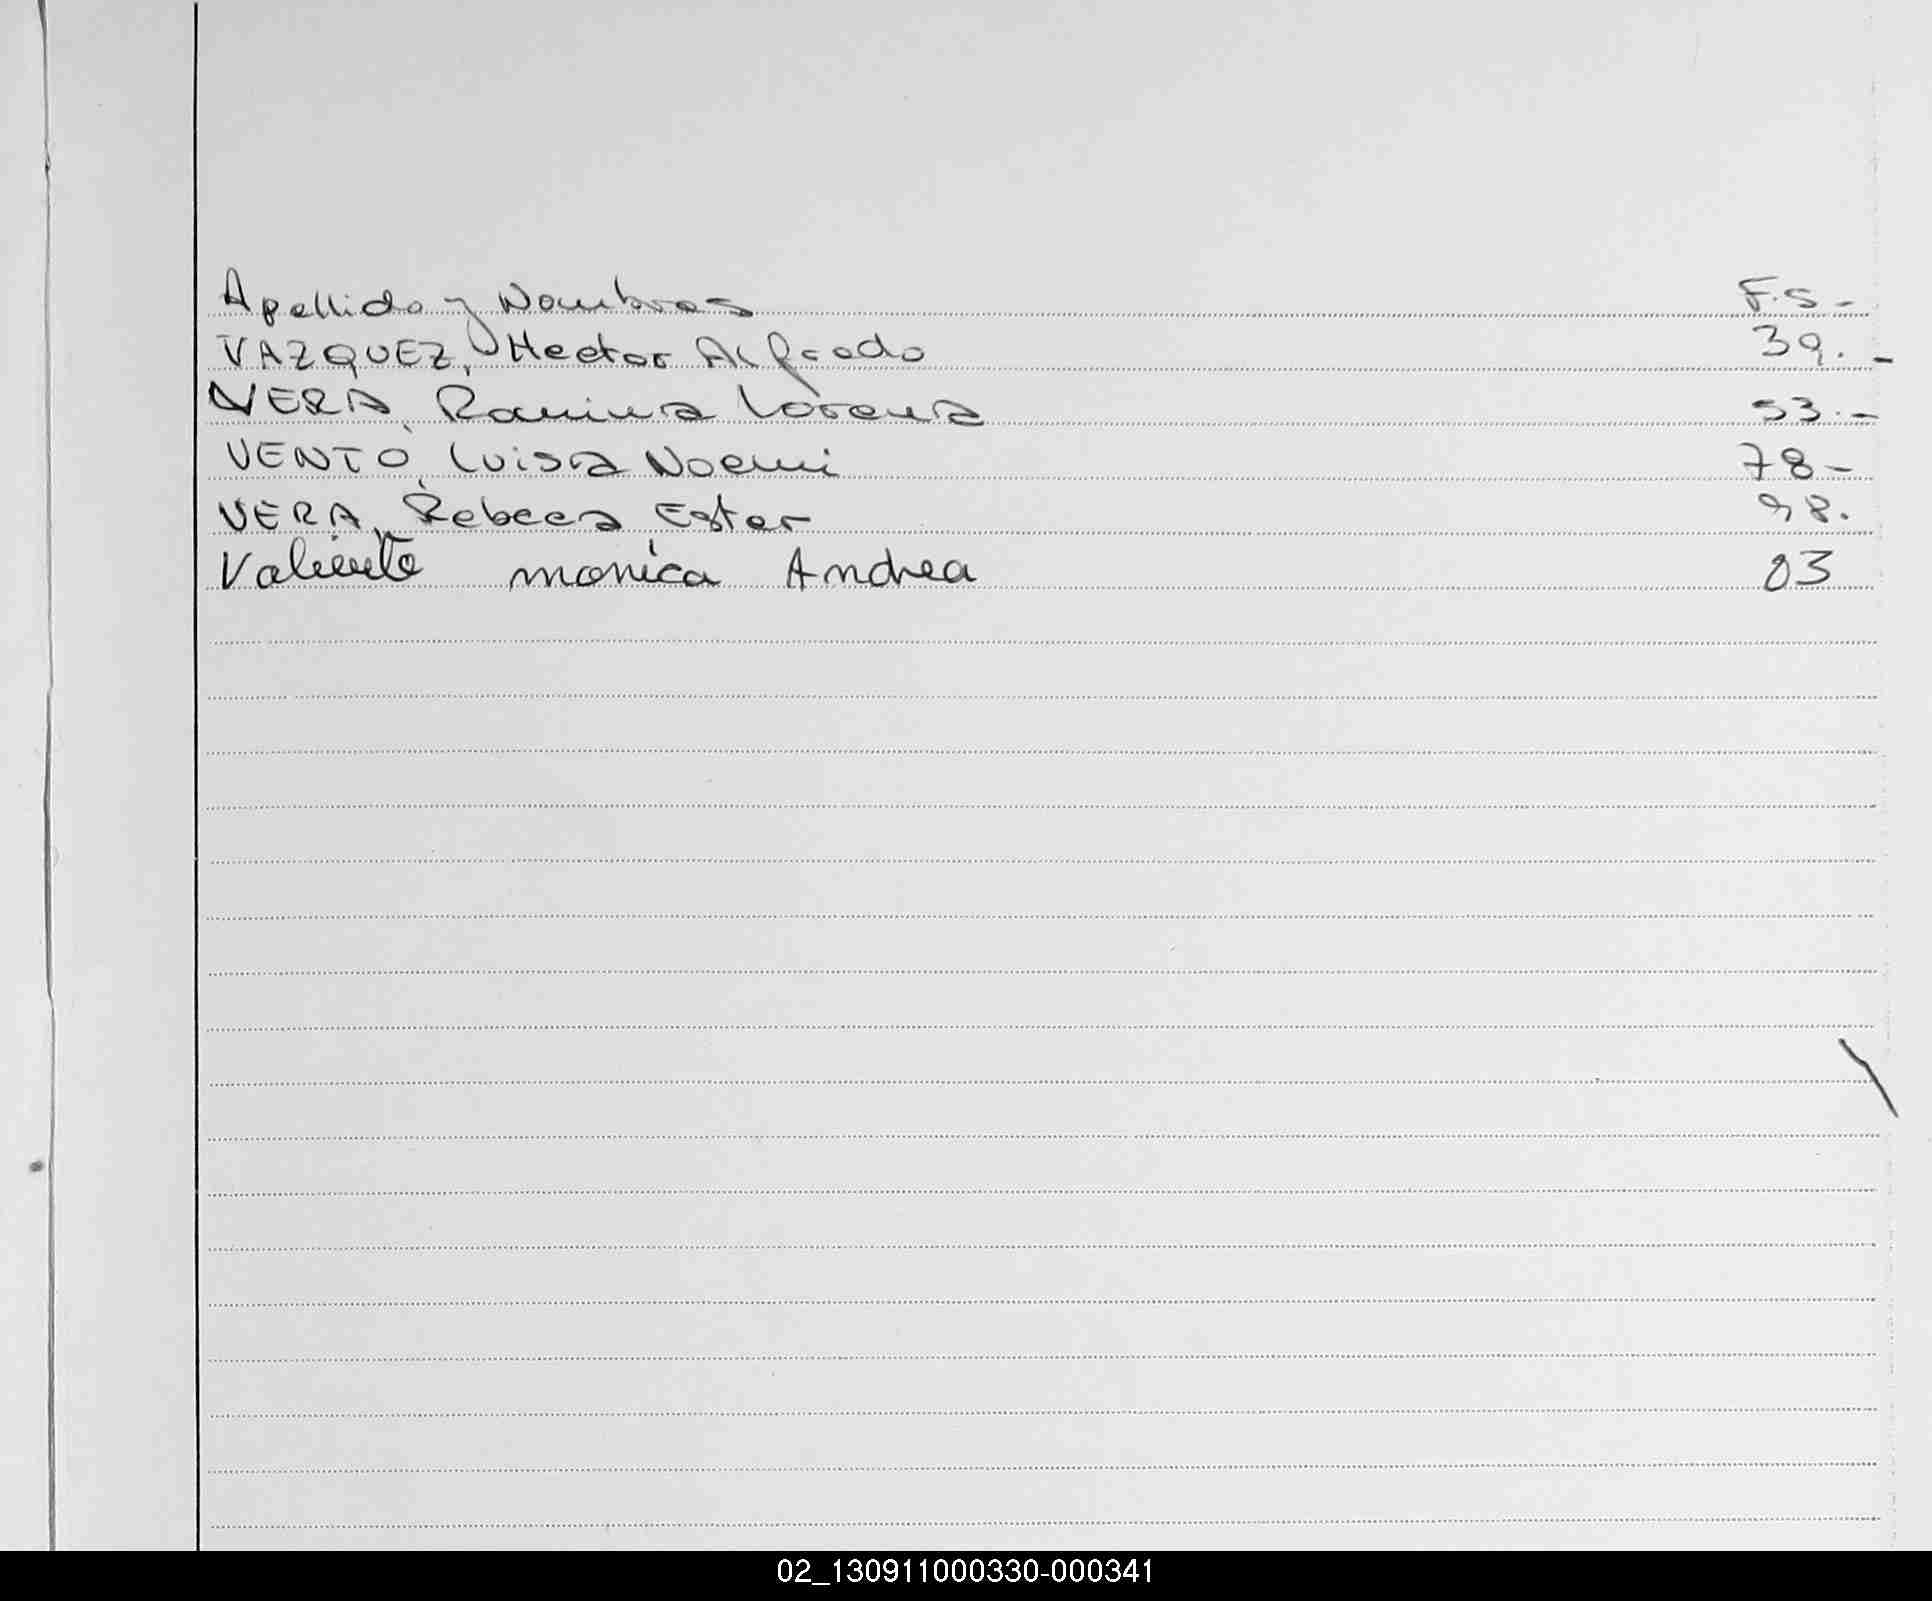 Apellido y Nombres F.S-
VAZQUEZ, Hector Alfredo 39.-
VERA, Romina Lorena 53.-
VENTO, Luisa Noemi 78-
VERA, Rebeca Ester 98.
Valiente monica Andrea 03
02_130911000330-000341